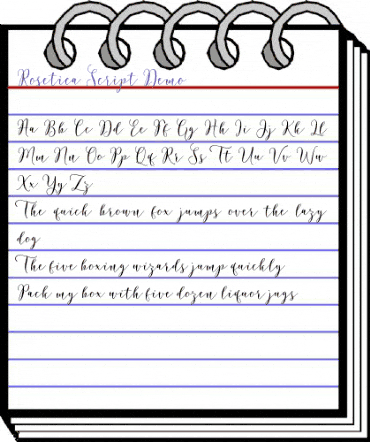 Rosetica Script Demo
Aa Bb Cc Dd Ee Ff Gg Hh Ii Jj Kk Ll
Mm Nn Oo Pp Qq Rr Ss Tt Uu Vv Ww
Xx Yy Zz
The quick brown fox jumps over the lazy
dog
The five boxing wizards jump quickly
Pack my box with five dozen liquor jugs